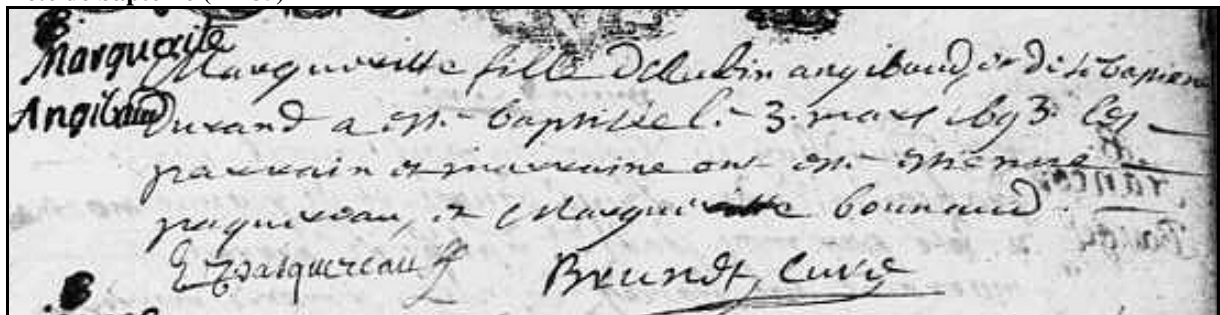 Marguerite
Angibaud
Margueritte fille de Lubin angibaud et de
Durand a esté baptisée le 3 mars 1693 les
parrain et marraine ont esté estienne
paquereau, et Margueritte bounaud
E Pasquereau
Brundt, Curé